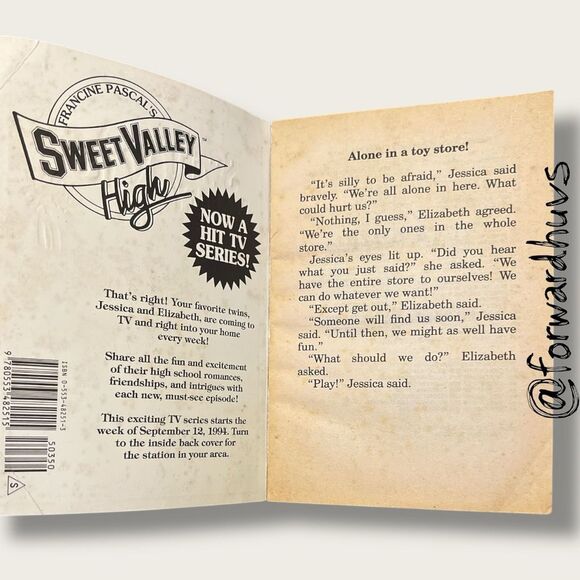 FRANCINE PASCAL'S
SWEET VALLEY™
High
NOW A
HIT TV
SERIES!
That's right! Your favorite twins,
Jessica and Elizabeth, are coming to
TV and right into your home
every week!
Share all the fun and excitement
of their high school romances,
friendships, and intrigues with
each new, must-see episode!
This exciting TV series starts the
week of September 12, 1994. Turn
to the inside back cover for
the station in your area.
ISBN 0-553-48251-3
9 780553 482515
50350
S
Alone in a toy store!
"It's silly to be afraid," Jessica said
bravely. "We're all alone in here. What
could hurt us?"
"Nothing, I guess," Elizabeth agreed.
"We're the only ones in the whole
store."
Jessica's eyes lit up. "Did you hear
what you just said?" she asked. "We
have the entire store to ourselves! We
can do whatever we want!"
"Except get out," Elizabeth said.
"Someone will find us soon," Jessica
said. "Until then, we might as well have
fun."
"What should we do?" Elizabeth
asked.
"Play!" Jessica said.
@forwardhuvs